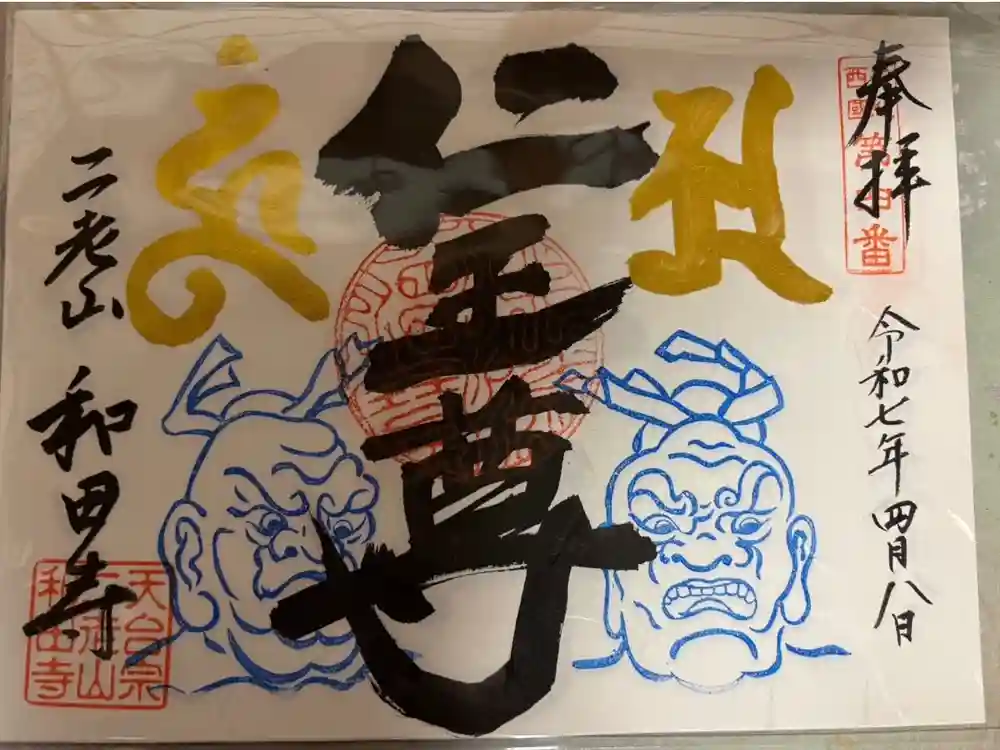 奉拝
西國
第四番
令和七年四月八日
仁王尊
二老山 和田寺
天台宗
二老山
和田寺